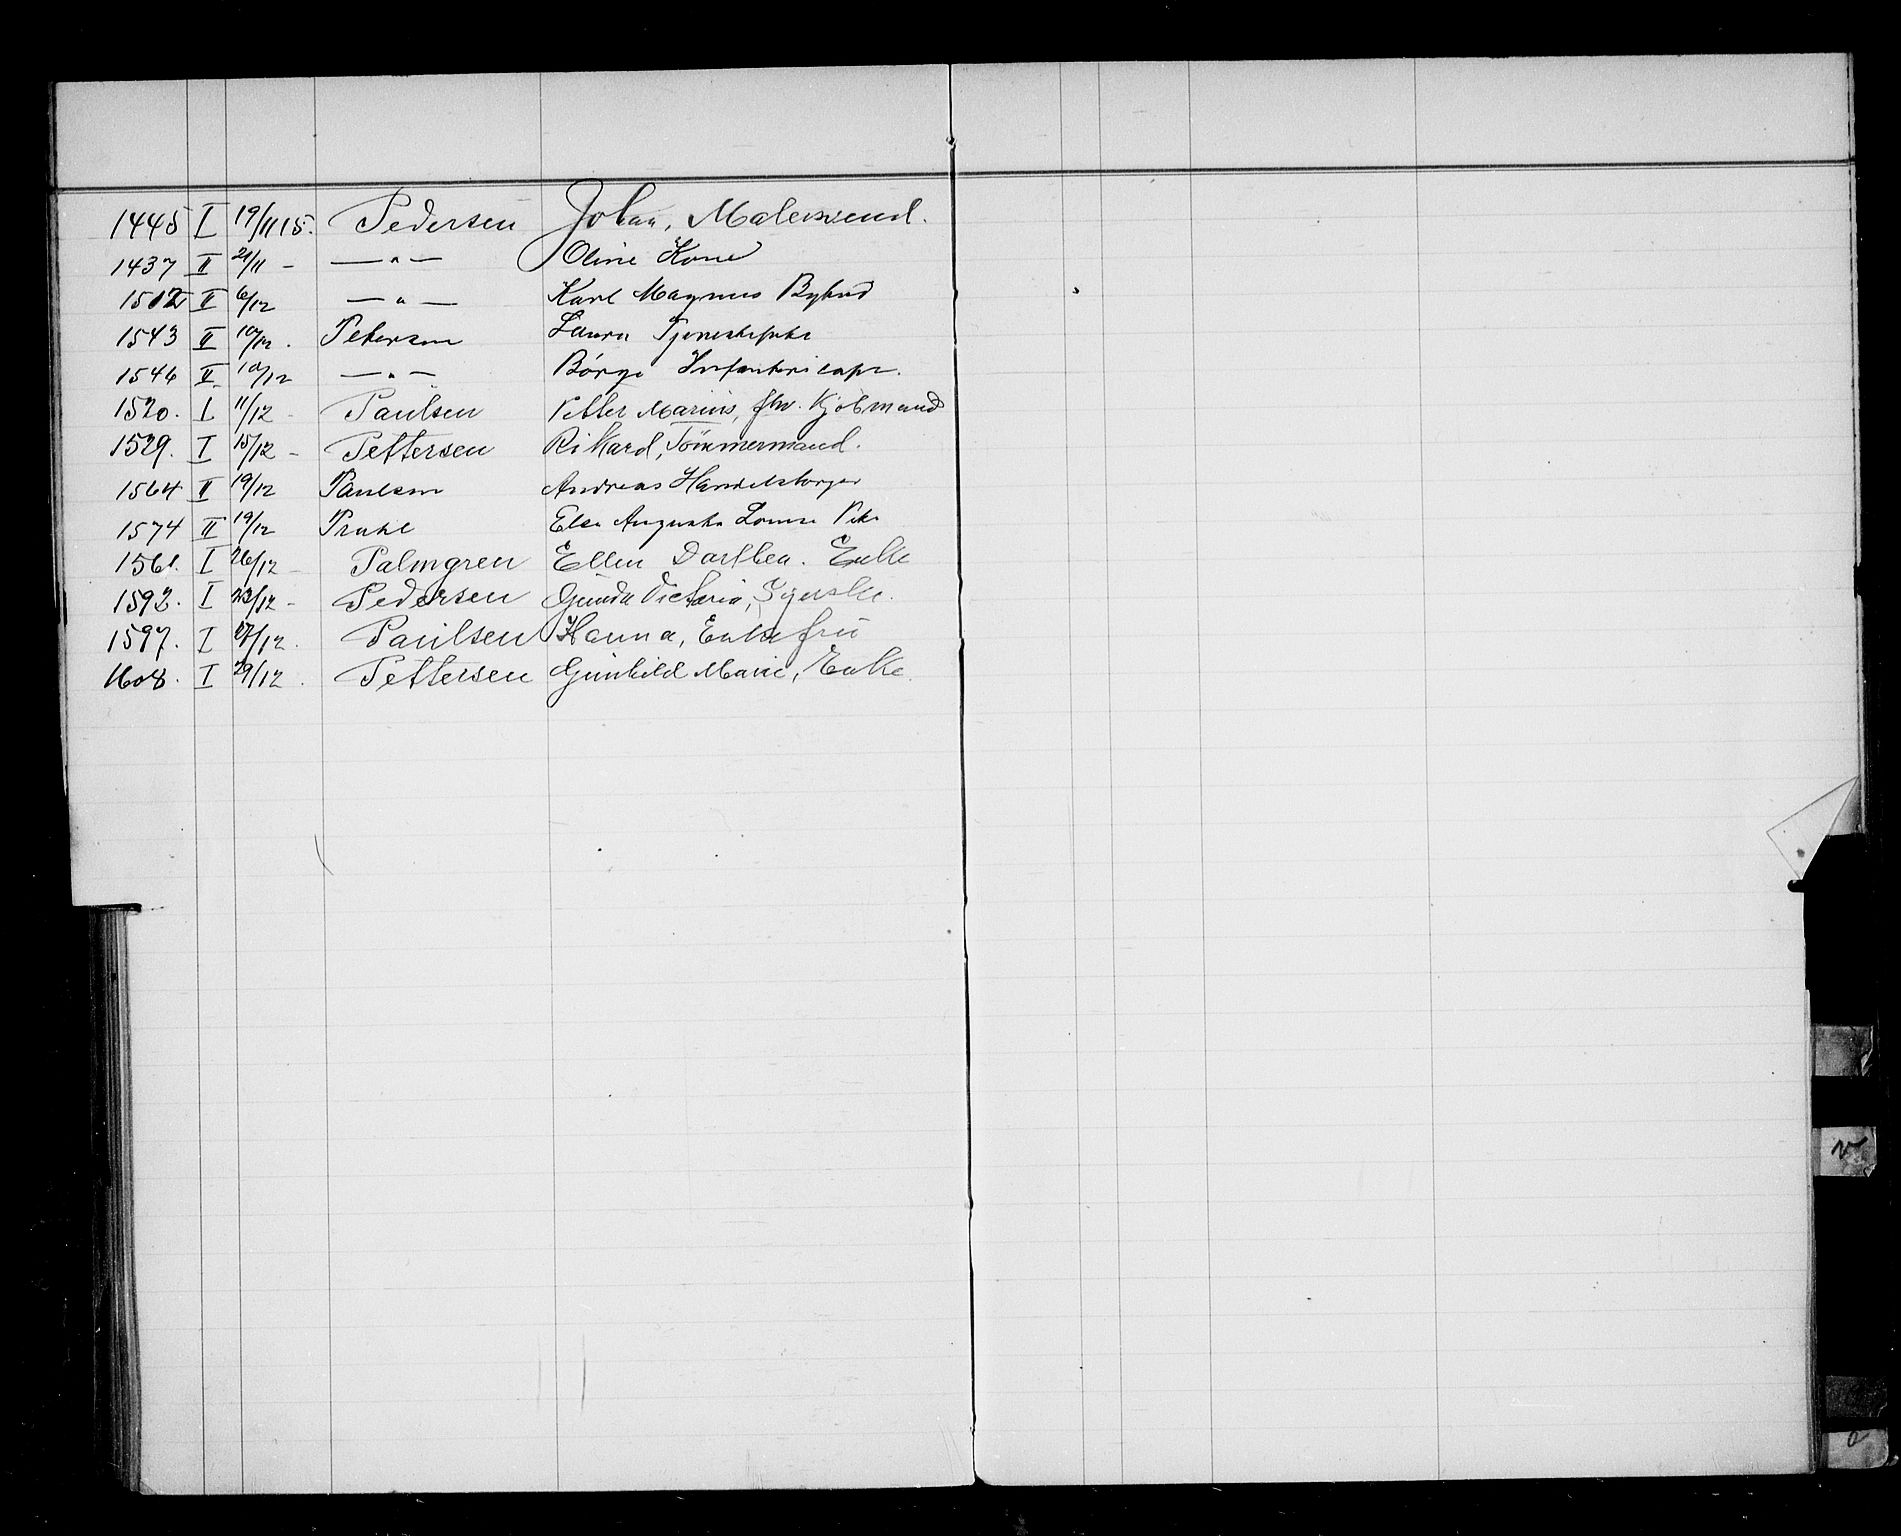 1445 I 19/11 15. Pedersen Johan, Malersvend.
1437 II 21/11 - —"— Oline Kone
1512 II 6/12 —"— Karl Magnus Bybud
1543 II 10/12. Petersen Laura Tjenestepike
1546 II 10/12 —"— Børge Infantericapt.
1520. I 11/12 - Paulsen Petter Marius, fhv. Kjøbmand
1529. I 15/12 - Pettersen Rikard, Tømmermand.
1564 II 19/12 Paulsen Andreas Handelsborger
1574 II 19/12 Prahl Else Augusta Louise Pike
1561. I 26/12 - Palmgren Ellen Dorthea. Enke
1592. I 23/12 - Pedersen Gunda Victoria, Syerske.
1597. I 27/12. Paulsen Hanna, Enkefru
1608. I 29/12. Pettersen Gunhild Marie, Enke.
V